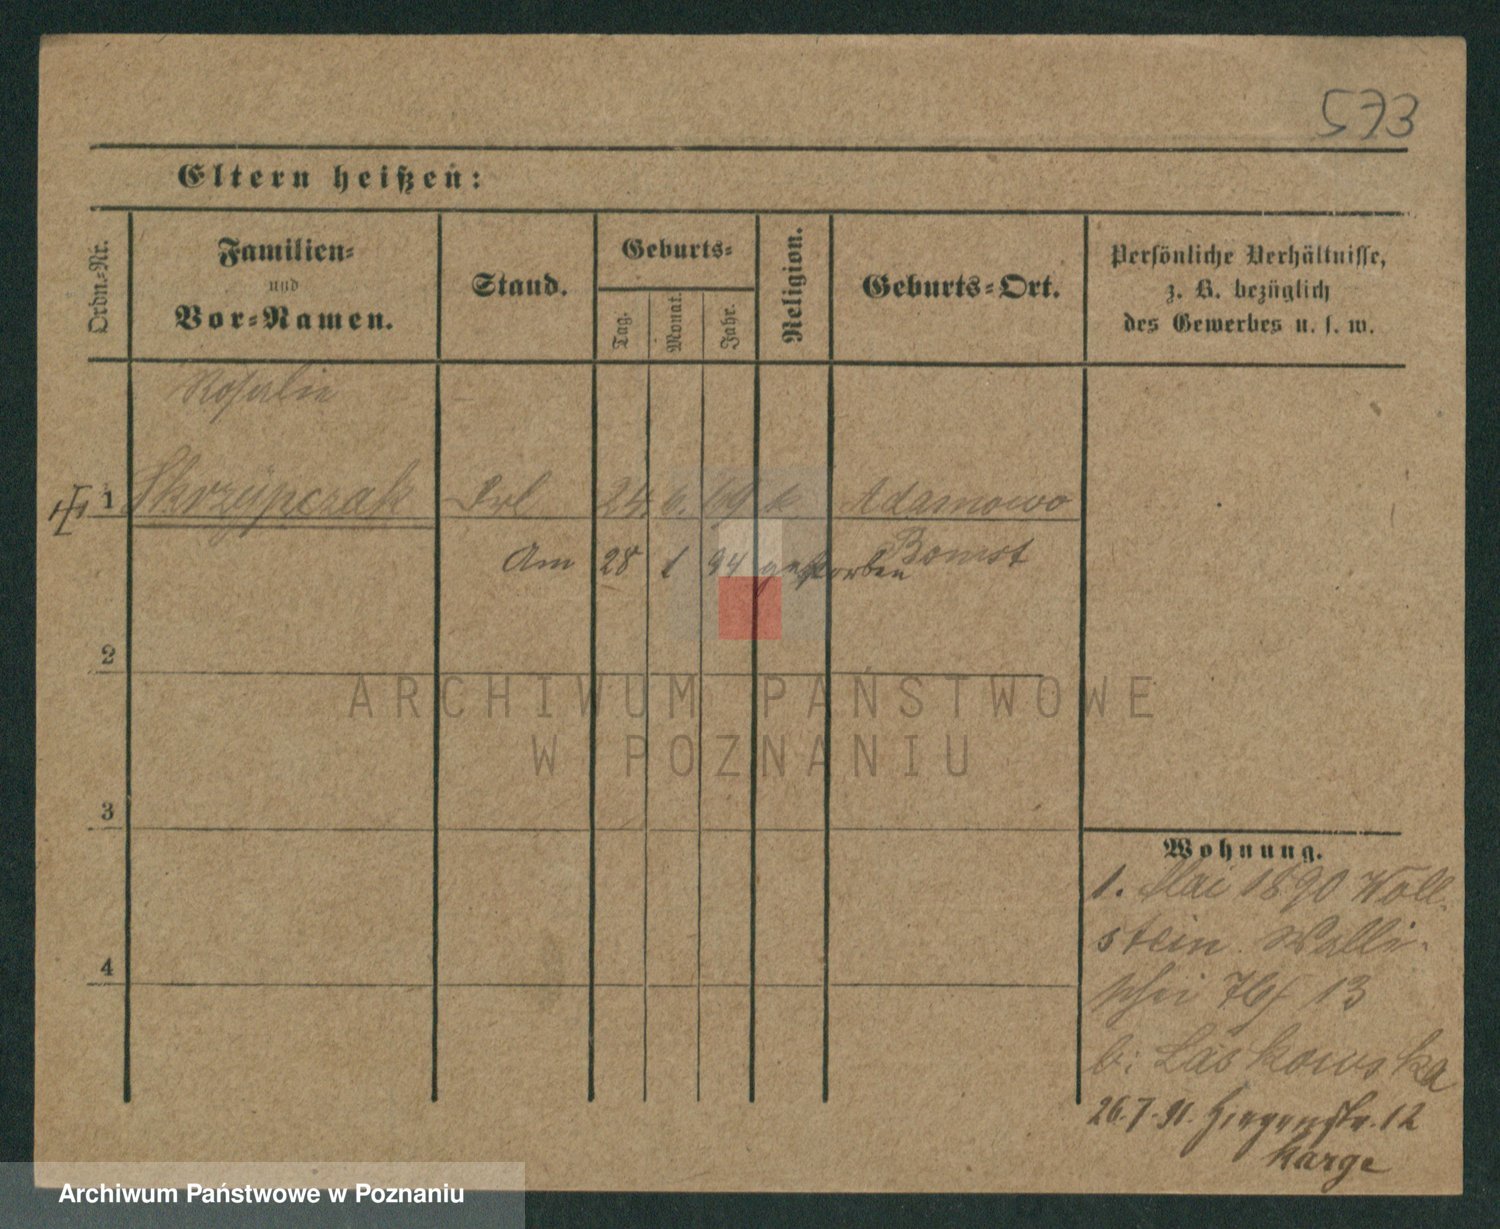 573
Eltern heißen:
Ordn.-Nr.
Familien-
und
Vor-Namen.
Stand.
Geburts-
Tag.
Monat.
Jahr.
Religion.
Geburts-Ort.
Persönliche Verhältnisse,
z. B. bezüglich
des Gewerbes u. s. w.
Rosalie
1 Skrzypczak Frl 24. 6. 69 k Adamowo
Bomst
Am 28 1 94 gestorben
2
ARCHIWUM PAŃSTWOWE
W POZNANIU
3
Wohnung.
1. Mai 1890 Woll-
stein. Walli-
schei 13
4
b: Laskowska
26.7.91. 12
Karge
Archiwum Państwowe w Poznaniu